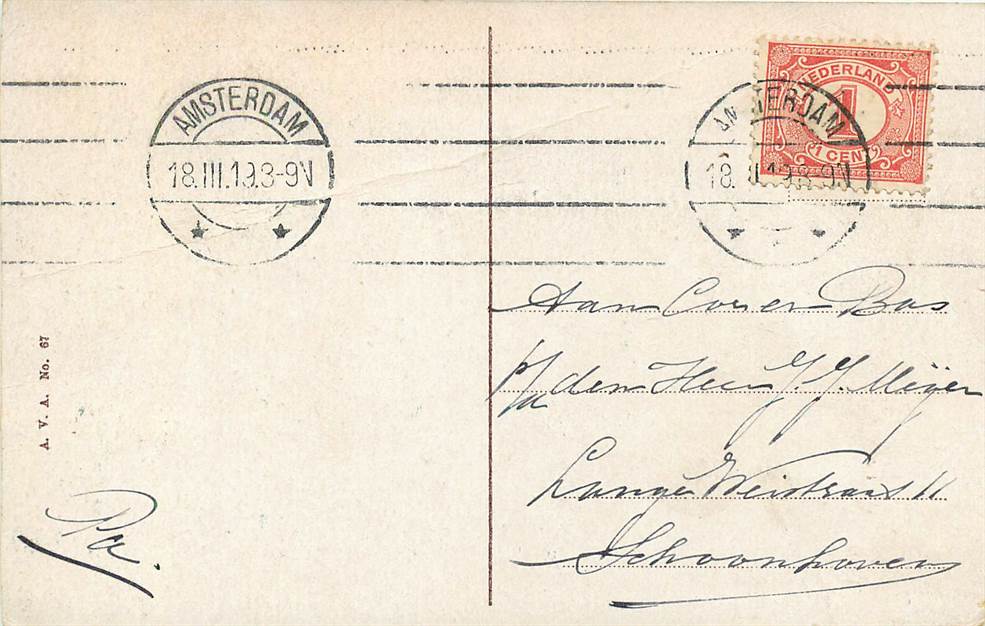 AMSTERDAM
18.III.19.8-9V
AMSTERDAM
18.III.19.8-9V
NEDERLAND
1
1 CENT
Aan Cor en Bas
p/a den Heer J. J. Meijer
Lange Weistraat
Schoonhoven
A. V. A. No. 67
Pa.